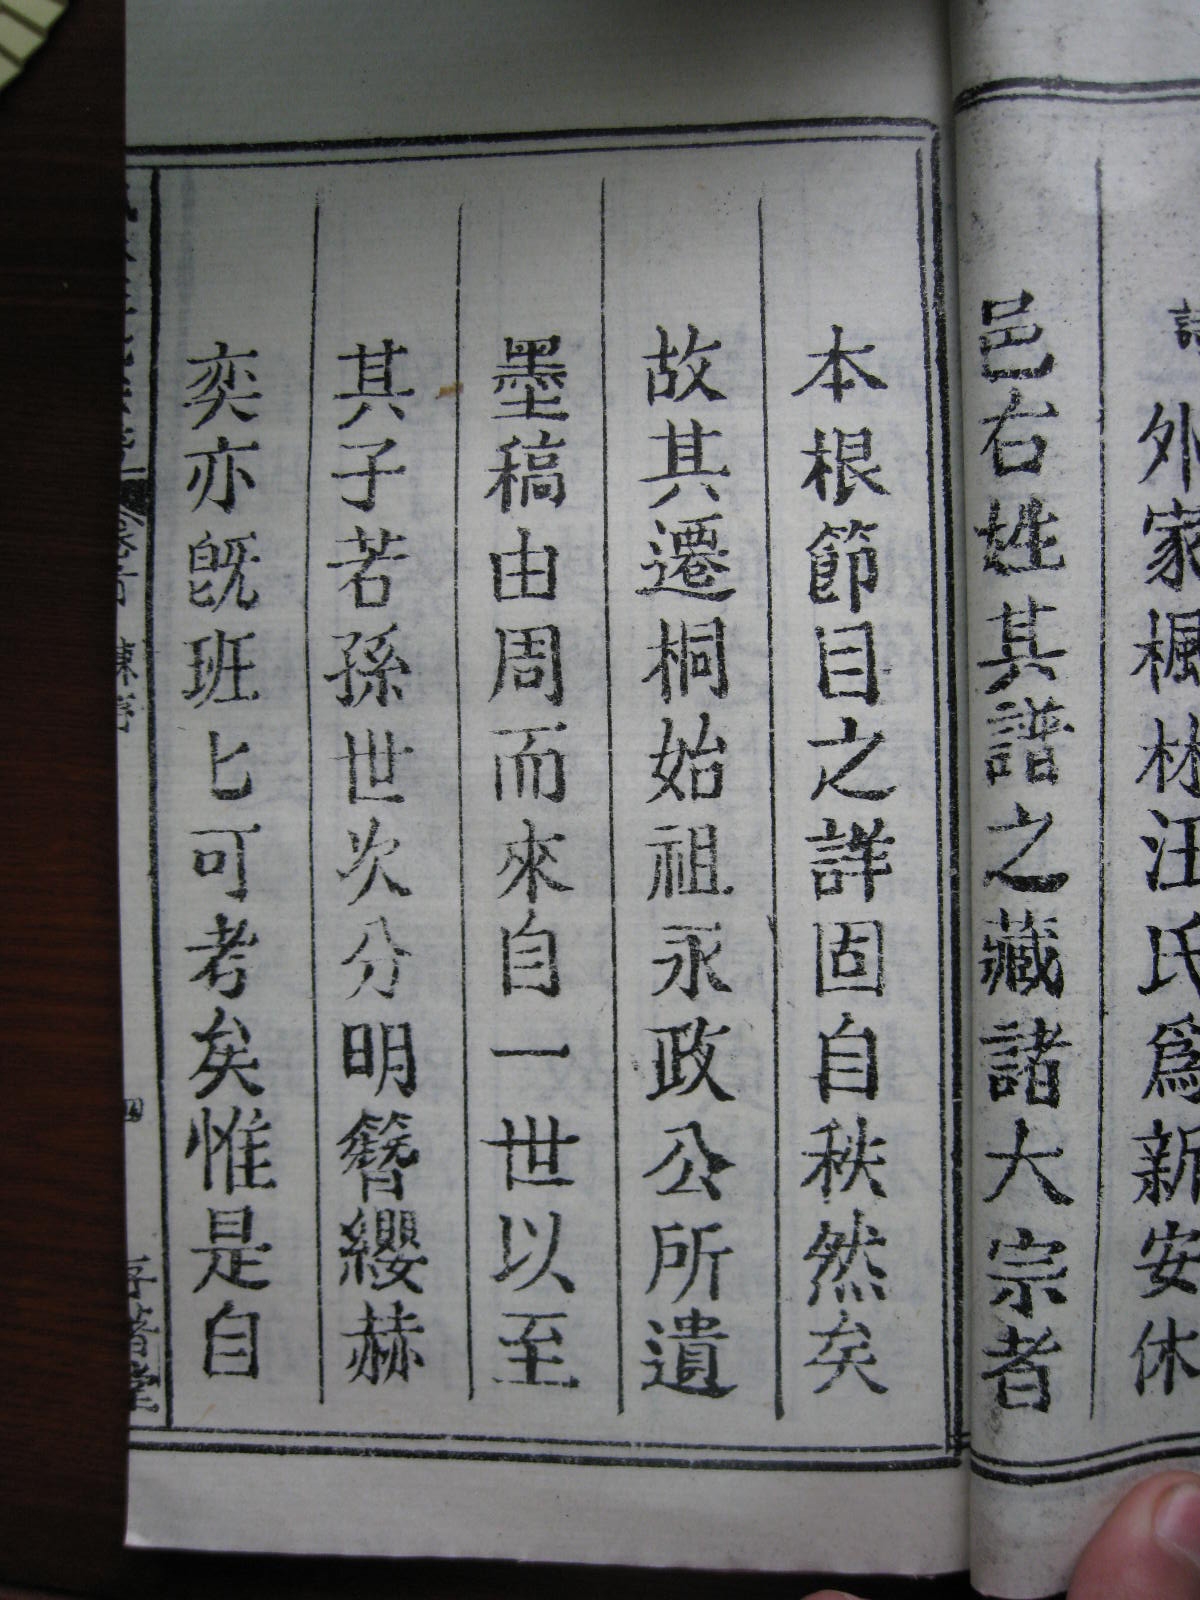 外家楓林汪氏為新安休
邑右姓其譜之藏諸大宗者
本根節目之詳固自秩然矣
故其遷桐始祖永政公所遺
墨稿由周而來自一世以至
其子若孫世次分明簪纓赫
奕亦旣班匕可考矣惟是自